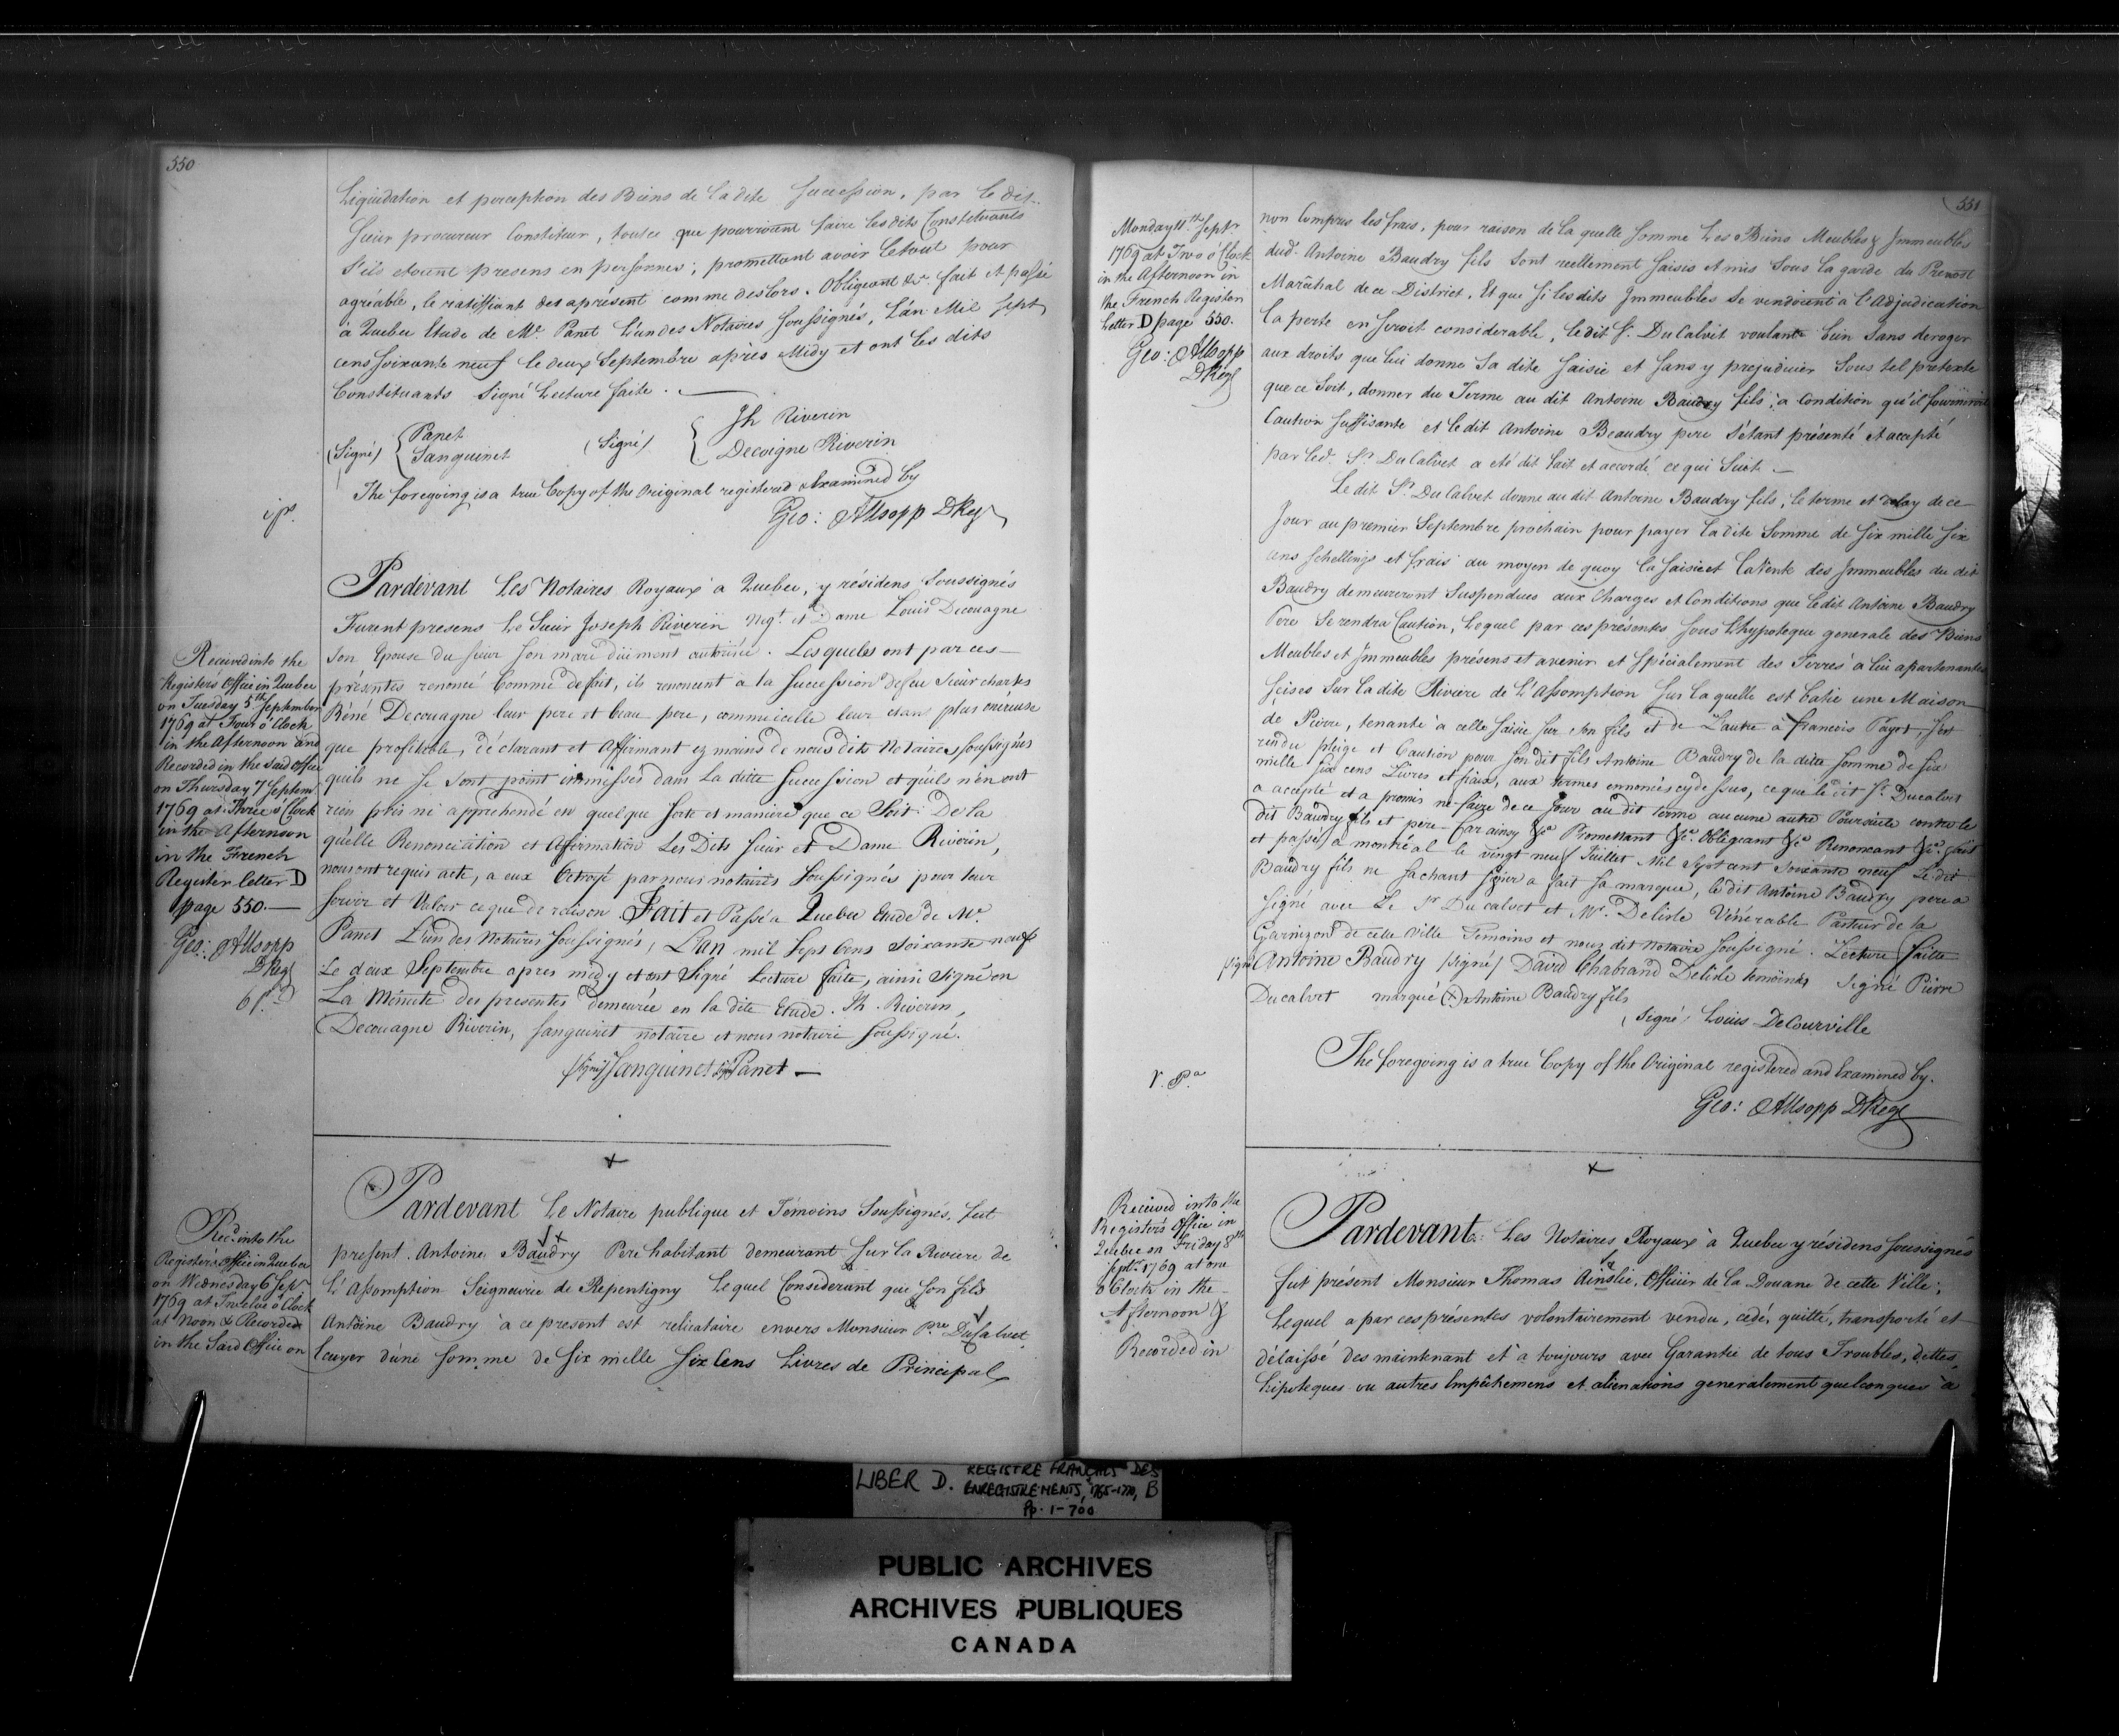 550
Liquidation et perception des Biens de la dite Succession, par le dit
Sieur procureur Constiteur, toutce que pourroient faire lesdits Constituants
s'ils etoient presens en personnes; promettant avoir letout pour
agréable, le ratiffiant des aprésent comme deslors. Obligeant &c. fait et passé
à Quebec Etude de Mr. Panet L'un des Notaires Soussignés, L'an Mil Sept
cens soixante neuf le deux Septembre après Midy et ont les dits
Constituants Signé Lecture faite.
(Signé) { Panet Sanguinet (Signé) { Jh Riverin Decoigne Riverin
The foregoing is a true Copy of the Original registered & Examined by
Geo: Allsopp DReg
Received into the
Registers Office in Quebec
on Tuesday 5th September
1769 at Four o'Clock
in the Afternoon and
Recorded in the Said Office
on Thursday 7 Septem
1769 at Three o'Clock
in the Afternoon
in the French
Register letter D
page 550.—
Geo: Allsopp
DReg
Pardevant Les Notaires Royaux à Quebec, y résidens Soussignés
Furent presens Le Sieur Joseph Riverin Negt. et Dame Louis Decouagne
Son Epouse du sieur son mari düment autorisée. Lesqueles ont par ces
présentes renoncé Comme de fait, ils renoncent a la Succession de feu Sieur charles
Réné Decouagne leur pere et beau pere, comme icelle leur etant plus onéreuse
que profitable, déclarant et Affirmant ez mains de nous dits Notaires soussignés
quils ne se sont point immissés dans la ditte Succession et quils n'en ont
rien pris ni apprehendé en quelque sorte et maniere que ce Soit. De la
quelle Renonciation et Affirmation Les Dits Sieur et Dame Riverin,
nous ont requis acte, a eux Octroyé par nous notaires Soussignés pour leur
servir et Valoir ce que de raison Fait et Passé a Quebec Etude de Mr.
Panet L'un des Notaires Soussignés, L'an mil Sept Cens Soixante neuf
Le deux Septembre apres midy et ont Signé Lecture faite, ainsi Signé en
La Minute des presentes demeurée en la dite Etude. Jh. Riverin,
Decouagne Riverin, Sanguinet notaire et nous notaire Soussigné.
(Signé) Sanguinet (Signé) Panet —
Recd. into the
Registers Office in Quebec
on Wednesday 6 Sepr
1769 at Twelve o'Clock
at Noon & Recorded
in the Said Office on
Pardevant Le Notaire publique et Témoins Soussignés, fut
présent Antoine Baudry Pere habitant demeurant Sur la Reviere de
L'Assomption Seigneurie de Repentigny Lequel Considerant que Son fils
Antoine Baudry à ce present est relicataire envers Monsieur Pre. DuCalvet
Ecuyer d'une Somme de Six mille Six Cens Livres de Principal
551
Monday 11th Septr
1769 at Two o'Clock
in the Afternoon in
the French Register
Letter D page 550.
Geo: Allsopp
DReg
non Compris les frais, pour raison de la quelle Somme Les Biens Meubles & Immeubles
dud. Antoine Baudry fils Sont reellement Saisis et mis Sous la garde du Prevost
Maréchal de ce District. Et que Si les dits Immeubles Se vendoient à l'Adjudication
la perte en seroit considerable, Ledit Sr. DuCalvet voulant bien Sans deroger
aux droits que lui donne Sa dite Saisie et Sans y prejudicier Sous tel pretexte
que ce Soit, donner du Terme au dit Antoine Baudry fils, à Condition qu'il fourniroit
Caution Suffisante et ledit Antoine Beaudry pere S'étant présenté et accepté
par led. Sr. DuCalvet a eté dit fait et accordé ce qui Suit.—
Le dit Sr. DuCalvet donne au dit Antoine Baudry fils, le terme et delay de ce
Jour au premier Septembre prochain pour payer la dite Somme de Six mille Six
cens Schellings et frais au moyen de quoy la Saisie et la Vente des Immeubles du dit
Baudry demeureront Suspendues aux Charges et Conditions que ledit Antoine Baudry
Pere Se rendra Caution, Lequel par ces présentes Sous L'hypoteque generale des Biens
Meubles et Immeubles présens et avenir et Spécialement des Terres à lui apartenantes
Seises Sur la dite Riviere de L'Assomption Sur laquelle est batie une Maison
de Pierre, tenante à celle Saisie Sur Son fils et de L'autre à francois Payet, Sest
rendu pleige et Caution pour Son dit fils Antoine Baudry de la ditte Somme de Six
mille Six cens Livres et fraix, aux termes ennoncés cydessus, ce que le dit Sr. Ducalvet
a accepté et a promis ne faire de ce Jour au dit terme aucune autre Poursuite contre le
dit Baudry fils et pere Car ainsy &ca Promettant &ca Obligeant &ca Renoncant &ca. fait
et passé a montréal le vingt neuf Juillet Mil Sept cent Soixante neuf Le dit
Baudry fils ne Sachant Signer a fait Sa marque, le dit Antoine Baudry pere a
Signé avec Le Sr Ducalvet et Mr. Delisle Vénérable Pasteur de la
Garnizon de cette Ville Temoins et nous dit Notaire Soussigné. Lecture faitte
(Signé) Antoine Baudry (Signé) David Chabrand Delisle temoins Signé Pierre
Ducalvet marqué (x) Antoine Baudry fils
(Signé) Louis DeCourville
The foregoing is a true Copy of the Original registered and Examined by.
Geo: Allsopp DReg
Received into the
Registers Office in
Quebec on Friday 8th
Septr. 1769 at one
o'Clock in the
Afternoon &
Recorded in
Pardevant Les Notaires Royaux à Quebec y résidens Soussignés
fut présent Monsieur Thomas Ainslie, Officier de la Douane de cette Ville;
Lequel a par ces présentes volontairement vendu, cédé, quitté, transporté et
délaissé des maintenant et a toujours avec Garantie de tous Troubles, dettes,
hipoteques ou autres Empêchemens et aliénations generalement quelconques à
LIBER D. REGISTRE FRANÇAIS DES
ENREGISTREMENTS, 1765-1770, B
Pp. 1-700
PUBLIC ARCHIVES
ARCHIVES PUBLIQUES
CANADA